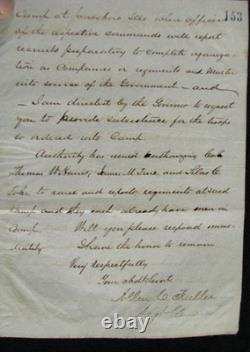 153
Camp at                    where officers
of the respective commands will report
recruits preparatory to complete organiza-
tion as Companies or regiments and muster
into service of the Government — and —
I am directed by the Governor to request
you to provide subsistence for the troops
so ordered into Camp.
Authority has issued
Thomas W. Harris, James M. True and Silas C.
Toler to raise and report regiments at said
Camp and they each already have men in
Camp. Will you please respond imme-
diately.
I have the honor to remain
Very respectfully
Your obdt Servt
Allen C. Fuller